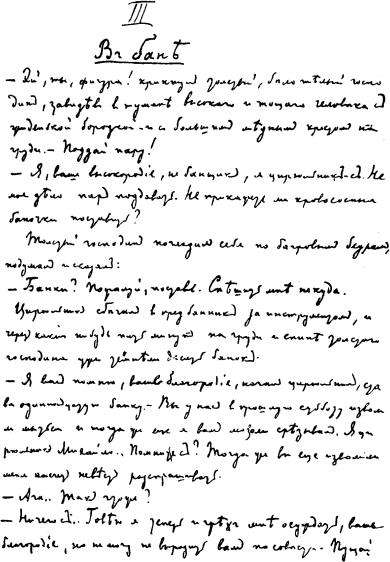 III
Въ банѣ
— Эй, ты, фигура! крикнулъ толстый, бѣлотѣлый госпо
динъ, завидѣвъ въ туманѣ высокаго и тощаго человѣка съ
бородкой и съ большимъ мѣднымъ крестомъ на
груди. — Поддай пару!
— Я, ваше высокородіе, не банщикъ, я цирюльникъ-съ. Не
мое дѣло паръ поддавать. Не прикажете ли кровососныя
баночки поставить?
Толстый господинъ погладилъ себя по багровымъ бедрамъ,
подумалъ и сказалъ:
— Банки? Пожалуй, поставь. Спѣшить мнѣ некуда.
Цирюльникъ сбѣгалъ въ предбанникъ за инструментомъ, и
черезъ какія нибудь пять минутъ на груди и спинѣ толстаго
господина уже темнѣли банокъ.
— Я васъ помню, ваше благородіе, началъ цирюльникъ, ста
вя одиннадцатую банку. — Вы у насъ въ прошлую субботу изволи
ли мыться и тогда же еще я вамъ мозоли срѣзывалъ. Я ци
рюльникъ Михайло.. Помните-съ? Тогда же вы еще изволили
меня насчетъ невѣстъ разспрашивать.
— Ага.. Такъ что же?
— Ничего-съ.. Говѣю я теперь и грѣхъ мнѣ осуждать, ваше
благородіе, но не могу не выразить вамъ по совѣсти.. Пущай